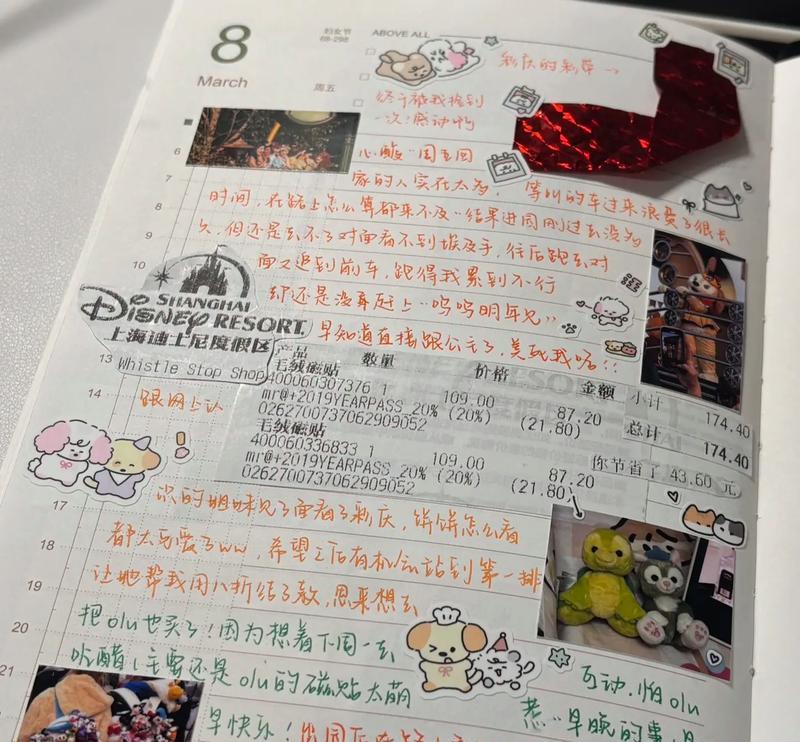 8
March
妇女节
周五
ABOVE ALL
彩庆的彩带→
终于被我捡到
一次!感动啊
心酸··周五回
家的人实在太多, 等叫的车过来浪费了很长
时间,在路上怎么算都来不及··结果进园刚过去没多
久,但还是去不了对面看不到埃及手,往后跑去对
面又追到前车,跑得我累到不行
却还是没再赶上··呜呜明年见··
早知道直接跟公主了,美死我呢!!
6
7
8
9
10
SHANGHAI
DISNEY RESORT
上海迪士尼度假区
Whistle Stop Shop
产品 数量 价格 金额
毛绒磁贴
400060307376 1 109.00 87.20
mr@+2019YEARPASS_20% (20%) (21.80)
0262700737062909052
毛绒磁贴
400060336833 1 109.00 87.20
mr@+2019YEARPASS_20% (20%) (21.80)
0262700737062909052
小计 174.40
总计 174.40
你节省了 43.60 元
13
14
跟网上认
识的姐妹见了面看了彩庆,饼饼怎么看
都太可爱了ww,希望之后有机会站到第一排
让她帮我用八折结了款,思来想去
把olu也买了!因为想着下周一去
吃醋(主要还是olu的磁贴太萌
互动,怕olu
惹··早晚的事,
早快乐!
17
18
19
20
21